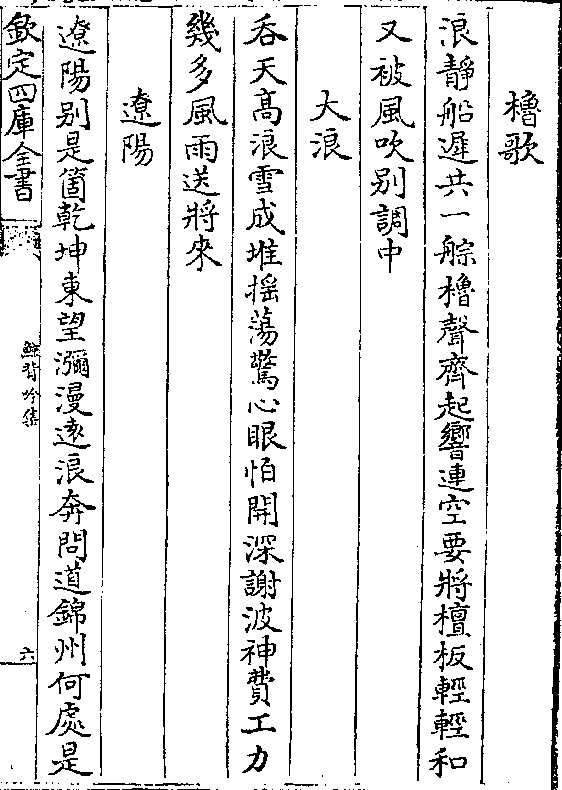 櫓歌
浪靜船遲共一䑸櫓聲齊起響連空要將檀板輕輕和
又被風吹别調中
大浪
吞天高浪雪成堆揺蕩驚心眼怕開深謝波神費工力
幾多風雨送將來
遼陽
遼陽别是箇乾坤東望瀰漫遠浪奔問道錦州何處是
欽定四庫全書
鯨背吟集
六